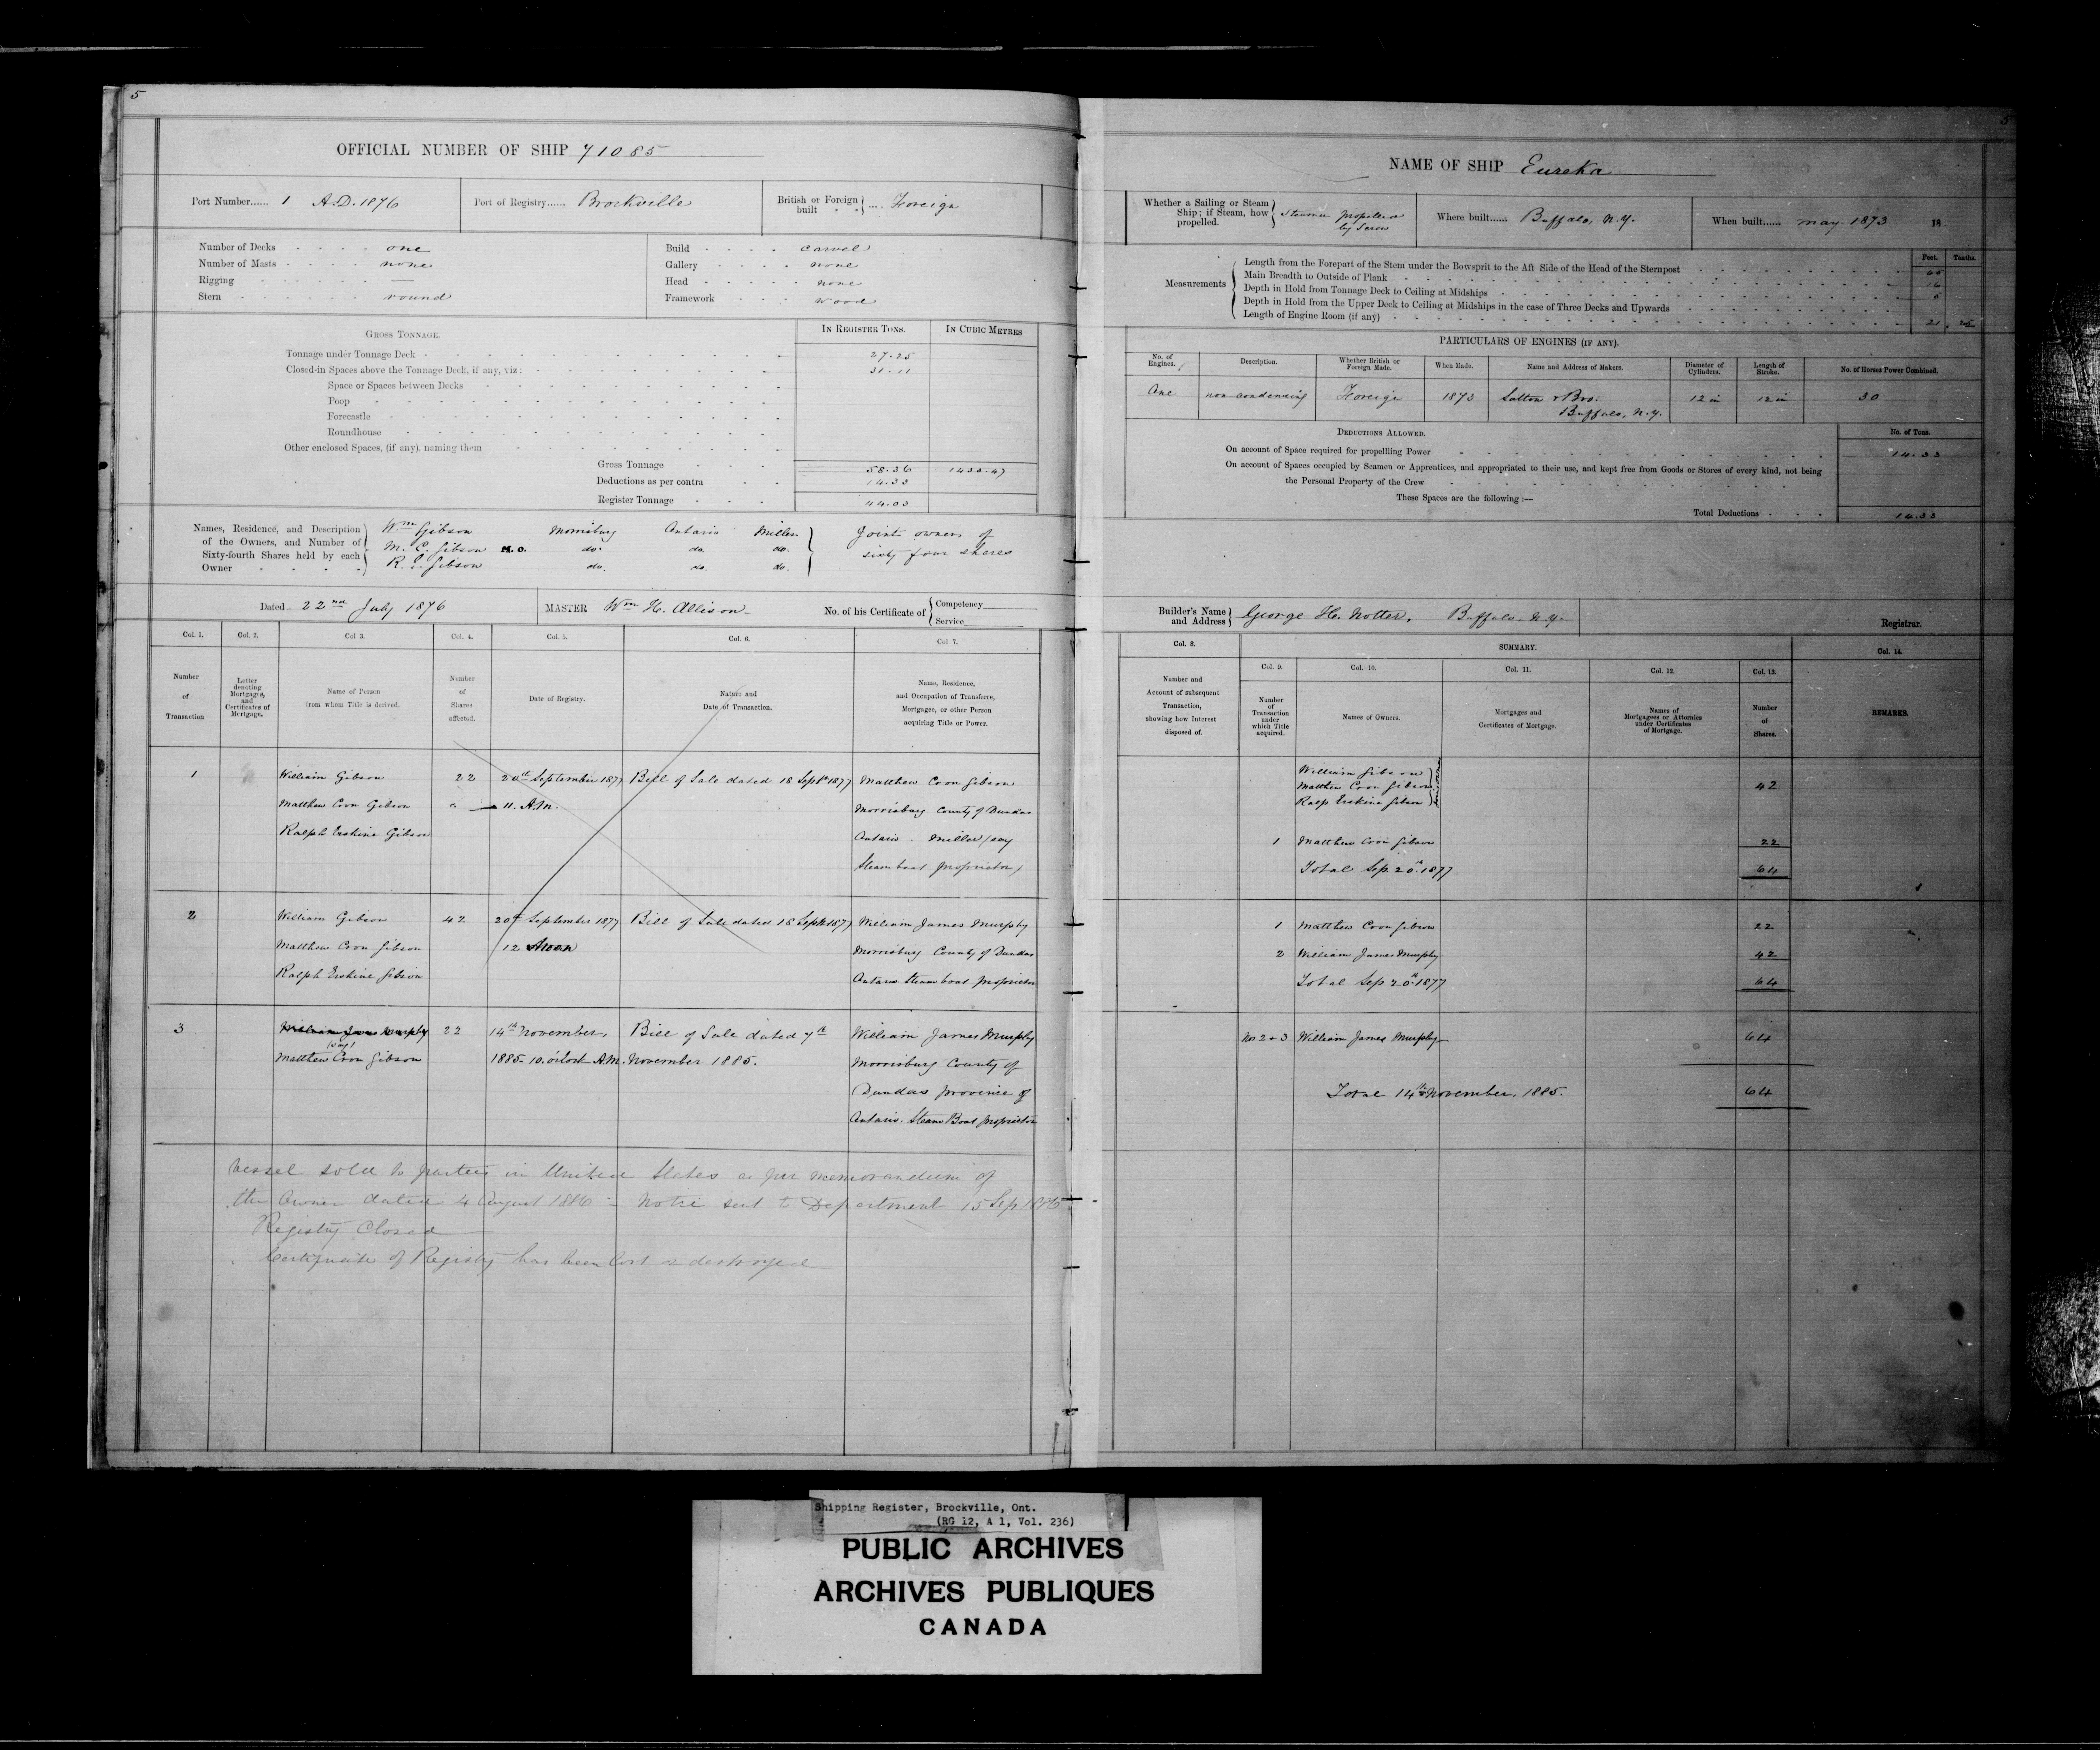 5
OFFICIAL NUMBER OF SHIP 71085
Port Number...... 1 A.D. 1876
Port of Registry...... Brockville
British or Foreign built .... Foreign
Number of Decks one
Number of Masts none
Rigging —
Stern round
Build carvel
Gallery none
Head none
Framework wood
GROSS TONNAGE.
IN REGISTER TONS.
IN CUBIC METRES
Tonnage under Tonnage Deck 27.25
Closed-in Spaces above the Tonnage Deck, if any, viz: 31.11
Space or Spaces between Decks
Poop
Forecastle
Roundhouse
Other enclosed Spaces, (if any), naming them
Gross Tonnage 58.36
Deductions as per contra 14.33
Register Tonnage 44.03
Names, Residence, and Description of the Owners, and Number of Sixty-fourth Shares held by each Owner
Wm Gibson Morrisburg Ontario Miller
M. C. Gibson M.O. do. do. do.
R. E. Gibson do. do. do.
Joint owners of
sixty four shares
Dated 22nd July 1876
MASTER Wm H. Allison
No. of his Certificate of Competency
Service
Col. 1.
Col. 2.
Col 3.
Col. 4.
Col. 5.
Col. 6.
Col. 7.
Number of Transaction
Letter denoting Mortgages, and Certificates of Mortgage.
Name of Person from whom Title is derived.
Number of Shares affected.
Date of Registry.
Nature and Date of Transaction.
Name, Residence, and Occupation of Transferee, Mortgagee, or other Person acquiring Title or Power.
1 William Gibson 22 20th September 1877 Bill of Sale dated 18 Sept 1877 Matthew Coon Gibson
Matthew Coon Gibson 11. A.M. Morrisburg County of Dundas
Ralph Erskine Gibson Ontario. Miller (say
Steamboat Proprietor)
2 William Gibson 42 20th September 1877 Bill of Sale dated 18 Sept 1877 William James Murphy
Matthew Coon Gibson 12 Noon Morrisburg County of Dundas
Ralph Erskine Gibson Ontario Steamboat Proprietor
3 William James Murphy 22 14th November, Bill of Sale dated 7th William James Murphy
(say)
Matthew Coon Gibson 1885. 10. o'clock A.M. November 1885. Morrisburg County of
Dundas Province of
Ontario. Steam Boat Proprietor
Vessel sold to parties in United States as per memorandum of
the Owner dated 4 August 1886 - Notice sent to Department 15 Sep 1886
Registry Closed
Certificate of Registry has been lost or destroyed
5
NAME OF SHIP Eureka
Whether a Sailing or Steam Ship; if Steam, how propelled. Steamer propelled by Screw
Where built...... Buffalo, N.Y.
When built...... May 1873 18
Feet. Tenths.
Measurements
Length from the Forepart of the Stem under the Bowsprit to the Aft Side of the Head of the Sternpost 45
Main Breadth to Outside of Plank 16
Depth in Hold from Tonnage Deck to Ceiling at Midships 5
Depth in Hold from the Upper Deck to Ceiling at Midships in the case of Three Decks and Upwards
Length of Engine Room (if any) 21
PARTICULARS OF ENGINES (IF ANY).
No. of Engines.
Description.
Whether British or Foreign Made.
When Made.
Name and Address of Makers.
Diameter of Cylinders.
Length of Stroke.
No. of Horses Power Combined.
One non condensing Foreign 1873 Sutton & Bro. 12 in 12 in 30
Buffalo, N.Y.
DEDUCTIONS ALLOWED.
No. of Tons.
On account of Space required for propellling Power 14.33
On account of Spaces occupied by Seamen or Apprentices, and appropriated to their use, and kept free from Goods or Stores of every kind, not being
the Personal Property of the Crew
These Spaces are the following :—
Total Deductions 14.33
Builder's Name and Address George H. Notter, Buffalo N.Y.
Registrar.
Col. 8.
SUMMARY.
Col. 14.
Col. 9.
Col. 10.
Col. 11.
Col. 12.
Col. 13.
Number and Account of subsequent Transaction, showing how Interest disposed of.
Number of Transaction under which Title acquired.
Names of Owners.
Mortgages and Certificates of Mortgage.
Names of Mortgagees or Attornies under Certificates of Mortgage.
Number of Shares.
REMARKS.
William Gibson
Matthew Coon Gibson 42
Ralp Erskine Gibson
1 Matthew Coon Gibson 22
Total Sep. 20th 1877 64
1 Matthew Coon Gibson 22
2 William James Murphy 42
Total Sep 20th 1877 64
Nos 2 & 3 William James Murphy 64
Total 14th November, 1885. 64
Shipping Register, Brockville, Ont.
(RG 12, A 1, Vol. 236)
PUBLIC ARCHIVES
ARCHIVES PUBLIQUES
CANADA